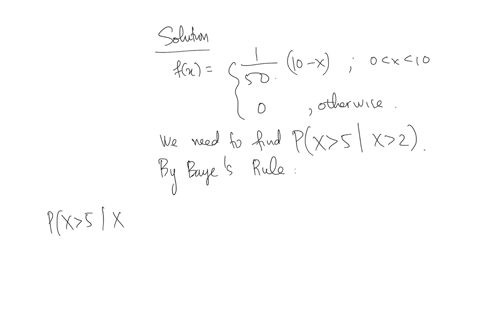 Solution
f(x) = { 1/50 (10-x) ; 0<x<10
0 , otherwise.
We need to find P(X>5 | X>2).
By Baye's Rule:
P(X>5 | X